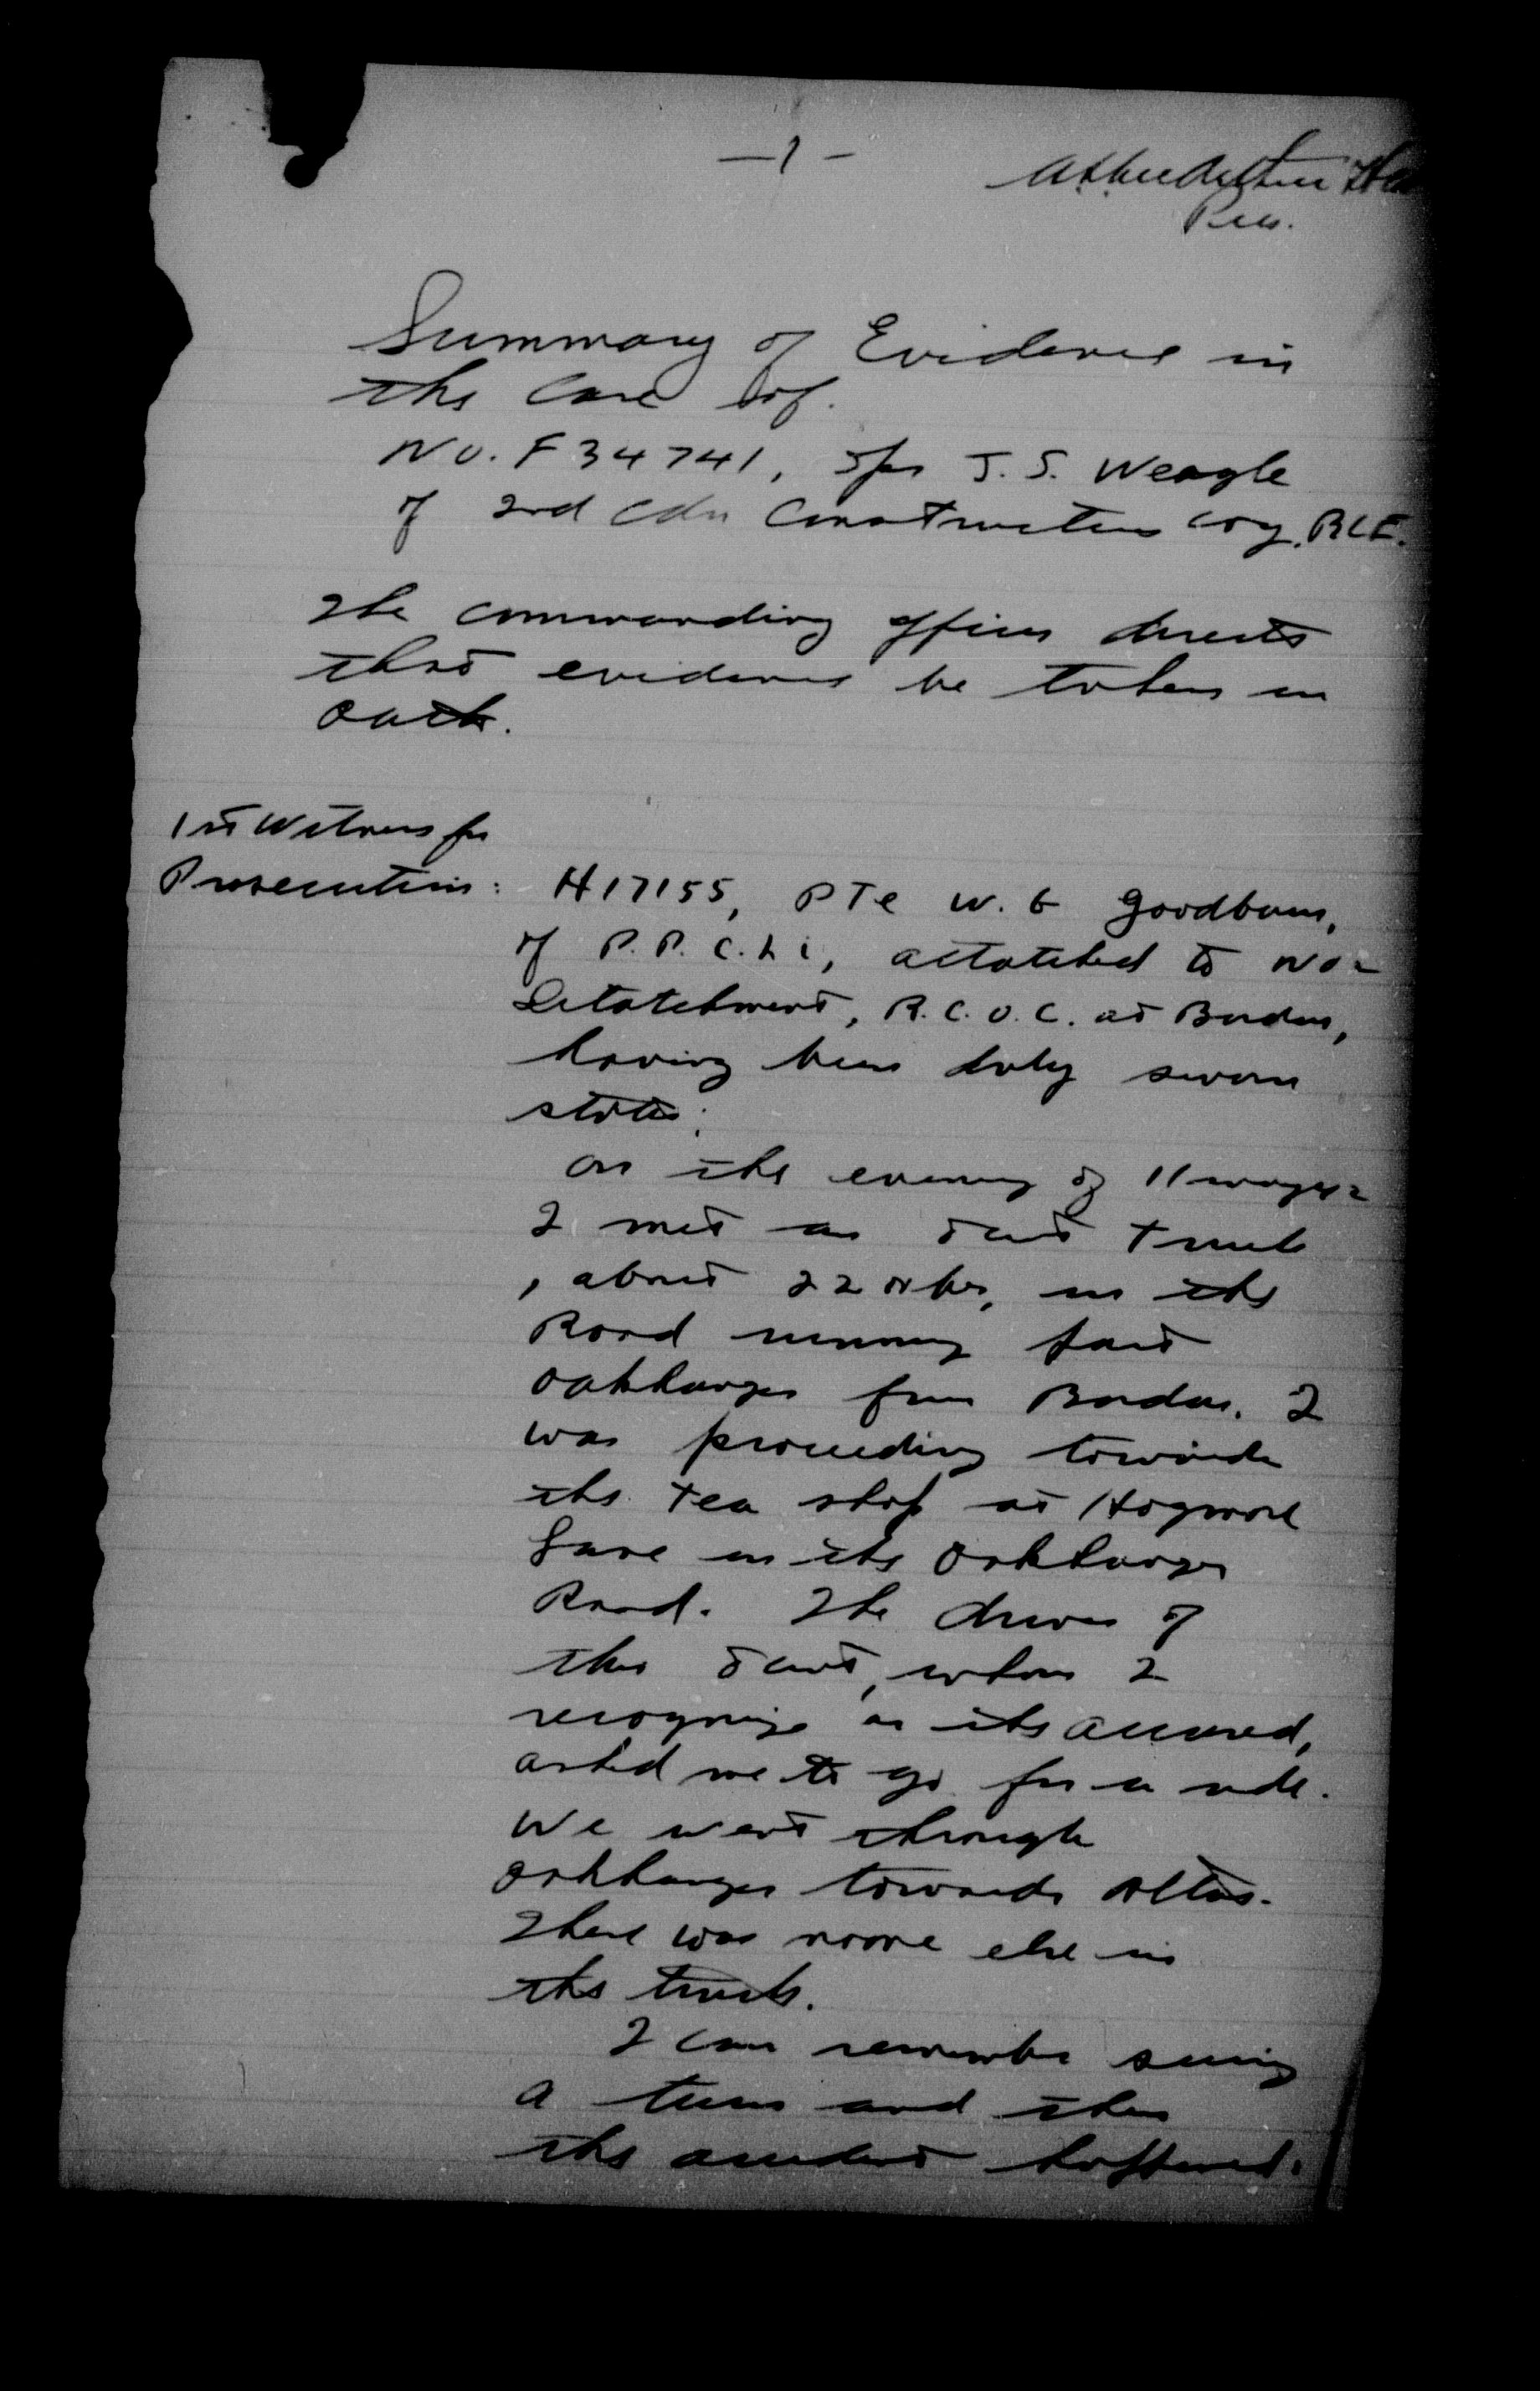 — 1 —
Summary of Evidence in
the Case of.
No. F 34741, Spr J. S. Weagle
of 2nd Cdn Construction Coy. RCE.
The commanding officer directs
that evidence be taken on
oath.
1st Witness for
Prosecution: H17155, PTe W. G Goodburn,
of P.P.C.L.i, attatched to No 2
Detatchment, R.C.O.C. at Bordon,
having been duly sworn
states:
On the evening of 11 may 42
I met an 8 cwt truck
, about 22 hrs, on the
Road running past
Oakhanger from Bordon. I
was proceeding towards
the Tea shop at Hogmore
Lane on the Oakhanger
Road. The driver of
this 8 cwt, whom I
recognize as the accused,
asked me to go for a ride.
We went through
Oakhanger towards Alton.
There was noone else in
the truck.
I can remember seeing
a turn and then
the accident happened.